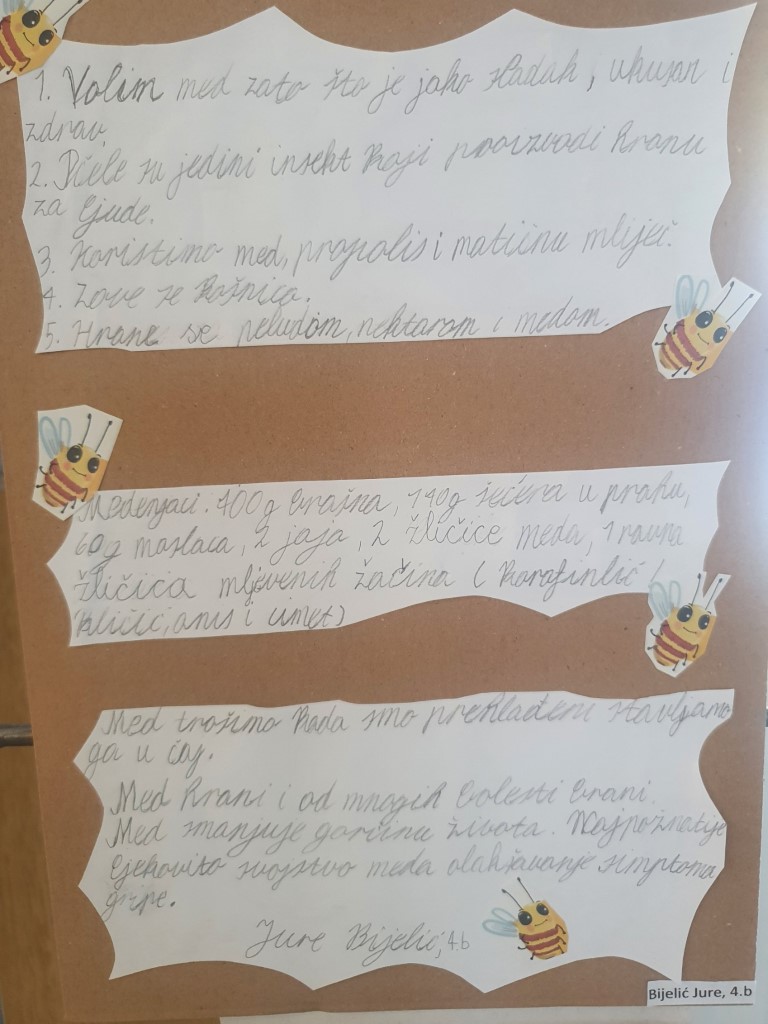 1. Volim med zato što je jako sladak, ukusan i
zdrav.
2. Pčele su jedini insekt koji proizvodi hranu
za ljude.
3. Koristimo med, propolis i matičnu mliječ.
4. Zove se košnica.
5. Hrane se peludom, nektarom i medom.
Medenjaci: 400g brašna, 140g šećera u prahu,
60g maslaca, 2 jaja, 2 žličice meda, 1 ravna
žličica mljevenih začina (
kličić, anis i
Med trošimo kada smo prehlađeni stavljamo
ga u čaj.
Med hrani i od mnogih bolesti brani.
Med smanjuje gorčinu života. Najpoznatije
ljekovito svojstvo meda olakšavanje simptoma
gripe.
Jure Bijelić, 4.b
Bijelić Jure, 4.b